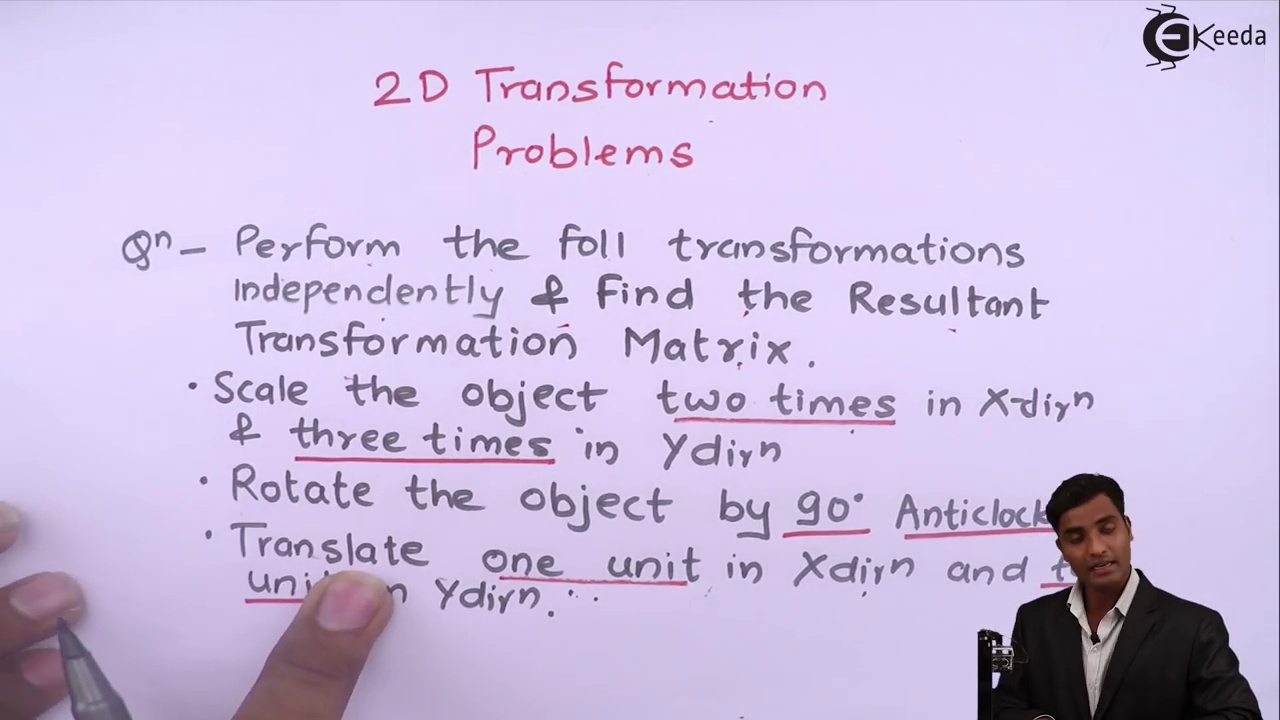 EKeeda
2D Transformation
Problems
Qn - Perform the foll transformations
Independently & find the Resultant
Transformation Matrix.
• Scale the object two times in X-dirn
& three times in Ydirn
• Rotate the object by 90° Anticlock
• Translate one unit in Xdirn and
Ydirn.